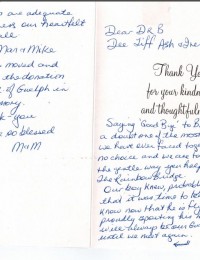 are adequate
our heartfelt
all
Max & Mike
moved and
the donation
of Guelph in
you
so blessed
M & M
Dear D & B
Dee Tiff Ash &
Thank Yo
for your kindn
and thoughtful
Saying "Good Bye" to
a doubt one of the most
we have ever faced
no choice and we are
the gentle way you help
The Rainbow Bridge.
Our boy knew, probabl
that it was time to
know now that he is
proudly sporting his
will always be our
until we meet again.